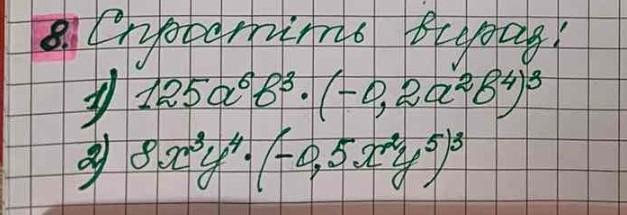 8. Спростіть вираз:
1) 125a⁶b³ · (-0,2a²b⁴)³
2) 8x³y⁴ · (-0,5x²y⁵)³